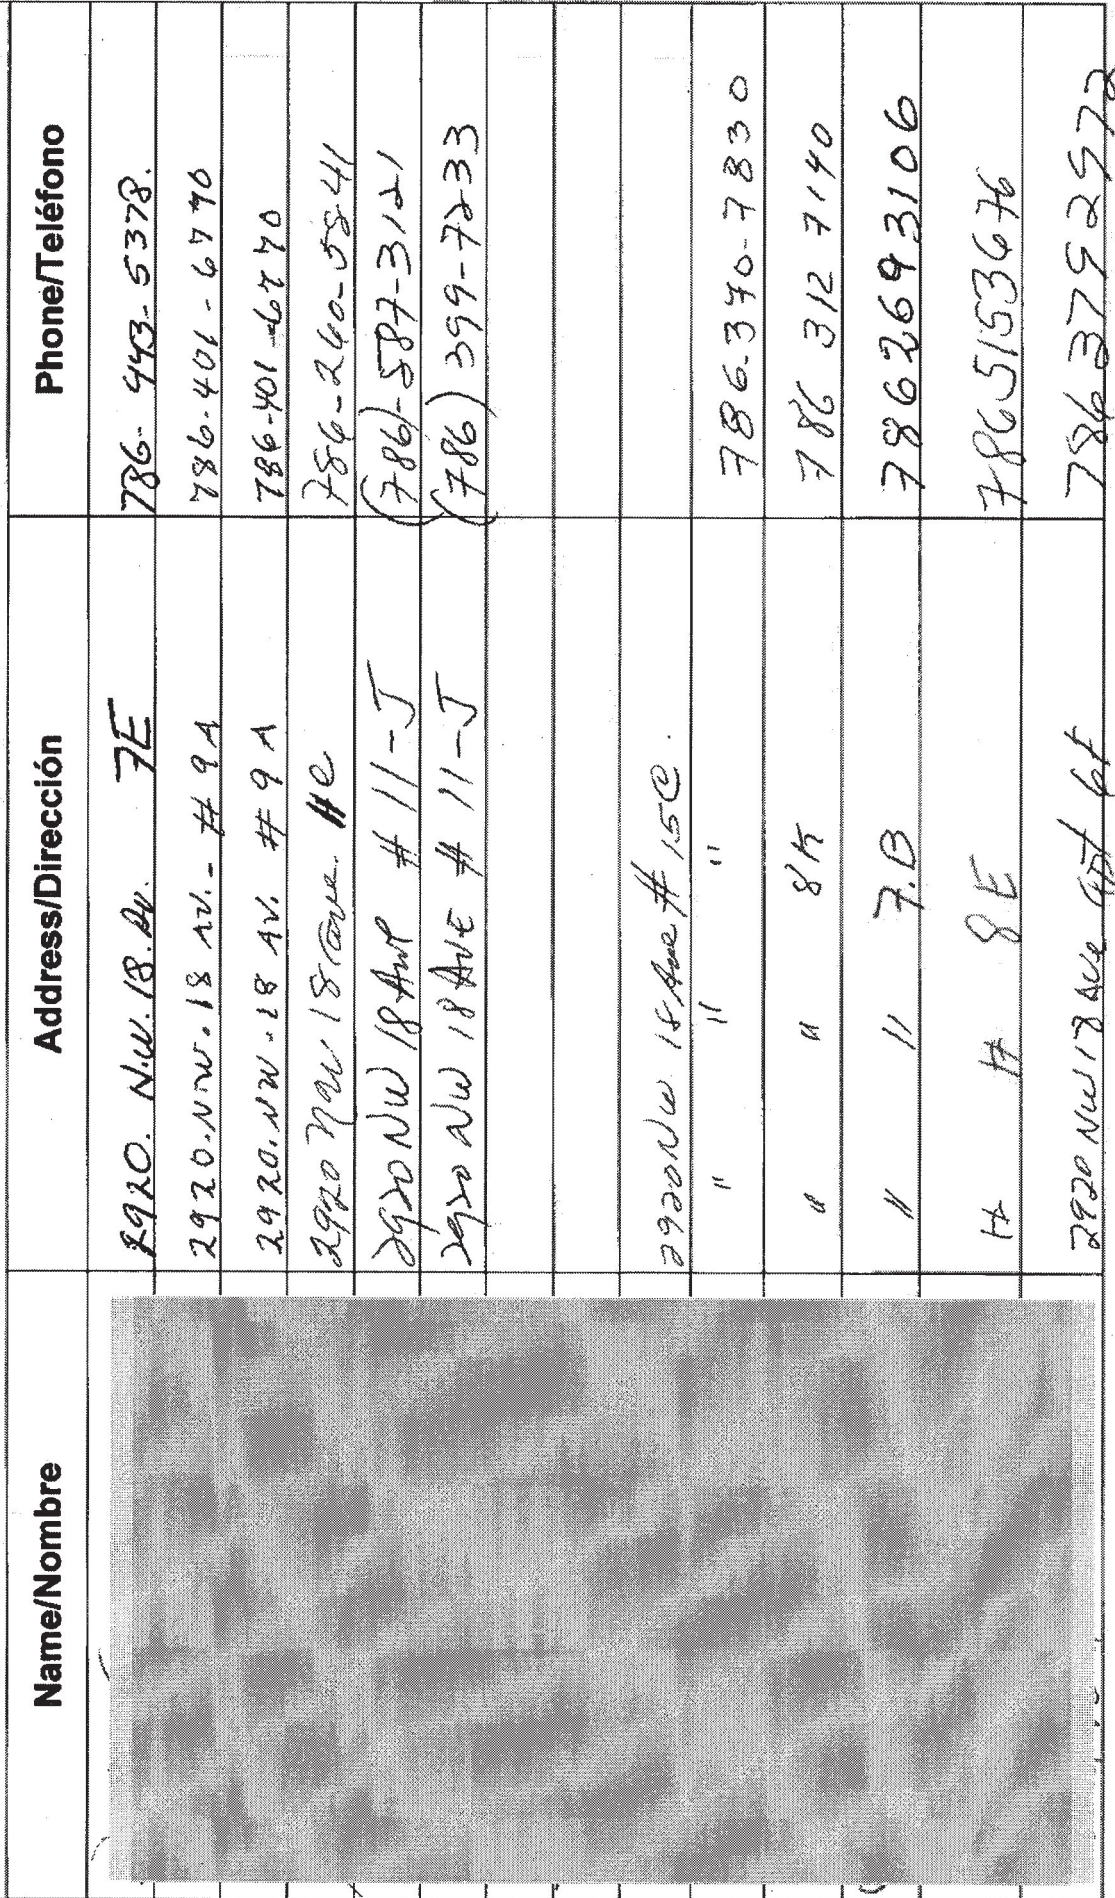 Name/Nombre Address/Dirección Phone/Teléfono
2920. N.W. 18. Av. 7E 786- 443- 5378.
2920. NW. 18 AV. - # 9A 786-401-6770
2920. NW. 18 AV. # 9A 786-401-6770
2920 NW 18 ave. 786-260-5841
2920 NW 18 Ave # 11-J (786)-587-3121
2920 NW 18 AVE # 11-J (786) 399-7233
2920 NW 18 Ave # 15C.
" " " 786-370-7830
" " 8K 786 312 7140
" " 7.B 786 269 3106
8E 7865153676
2920 NW 18 Ave apt 786 379 2972